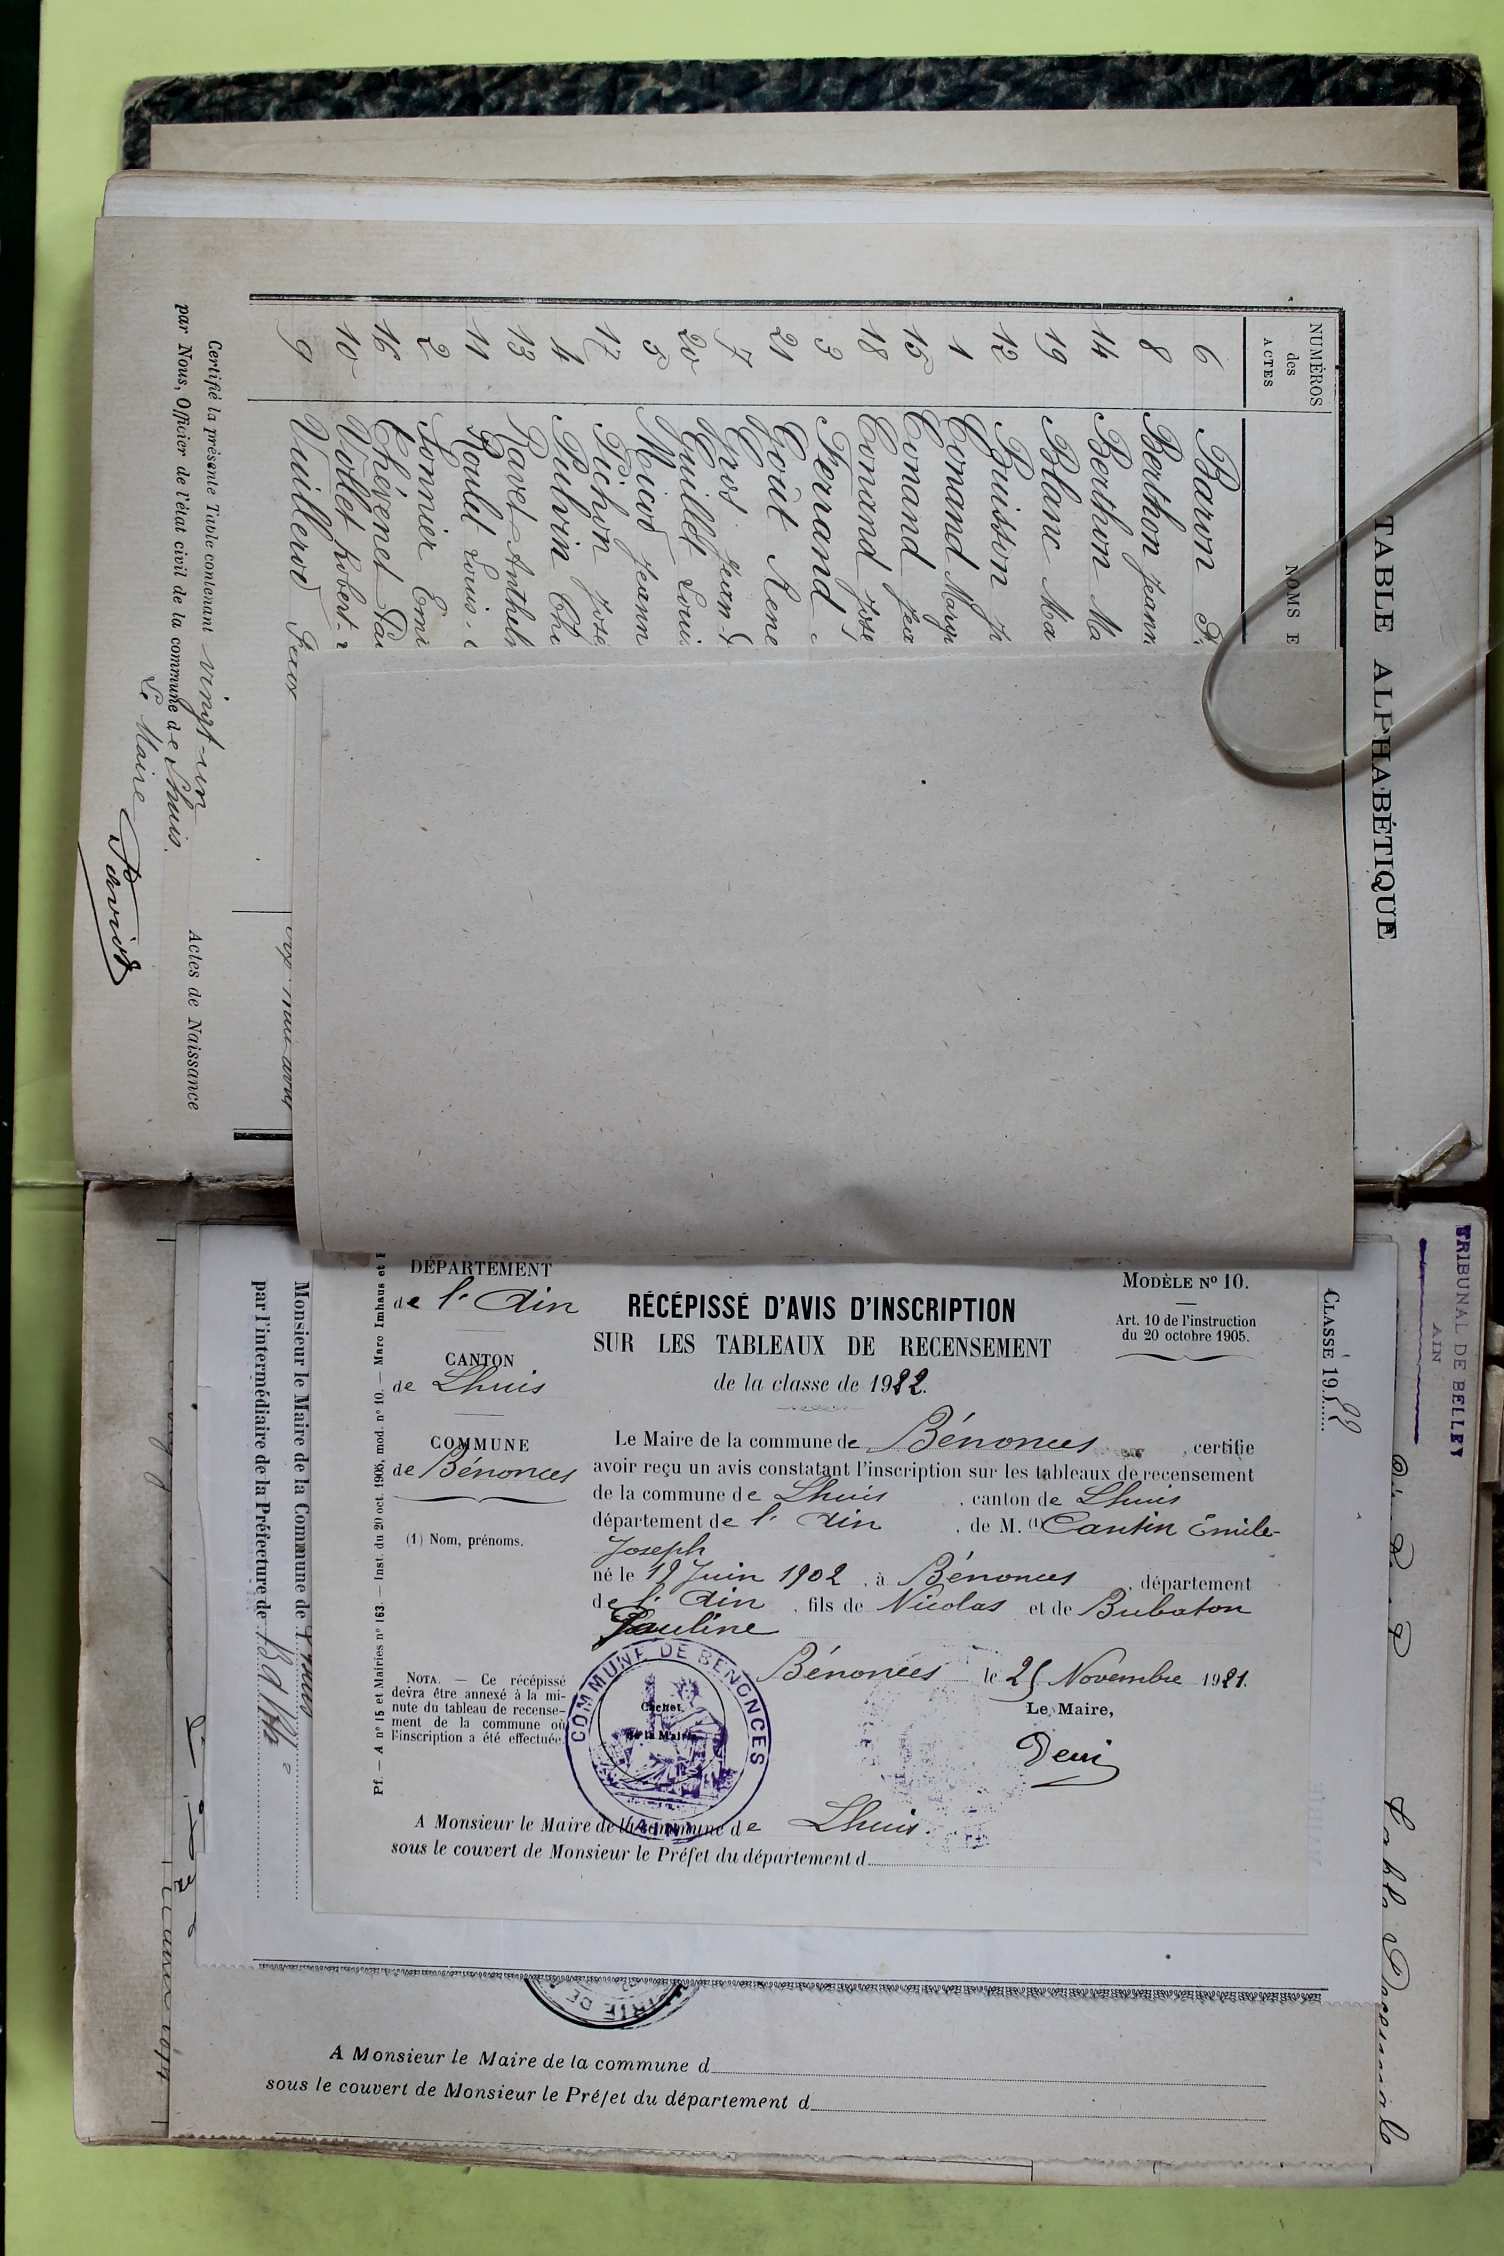 TABLE ALPHABÉTIQUE
NUMÉROS
des
ACTES
NOMS E
6 Baron
8 Berthon Jeann
14 Berthon Ma
19 Blanc Ma
12 Buisson
1 Conand Marg
15 Conand Jea
18 Conand Jose
3 Ferrand
21 Goût Rene
7 Gros Jean
20 Guillet Loui
5 Micoud Jeann
17 Pichon Jose
4 Pulvin
13 Ravet Anthel
11 Roulet Louis
2 Sonnier Emi
16 Thévenet
10 Vollet Robert
9 Vuillerod
Certifié la présente Table contenant vingt-un Actes de Naissance
par Nous, Officier de l'état civil de la commune de Lhuis.
Le Maire
TRIBUNAL DE BELLEY
AIN
CLASSE 1922
DÉPARTEMENT
de l'Ain
CANTON
de Lhuis
COMMUNE
de Bénonces
(1) Nom, prénoms.
NOTA. — Ce récépissé
devra être annexé à la mi-
nute du tableau de recense-
ment de la commune où
l'inscription a été effectuée.
MODÈLE Nº 10.
Art. 10 de l'instruction
du 20 octobre 1905.
RÉCÉPISSÉ D'AVIS D'INSCRIPTION
SUR LES TABLEAUX DE RECENSEMENT
de la classe de 1922.
Le Maire de la commune de Bénonces, certifie
avoir reçu un avis constatant l'inscription sur les tableaux de recensement
de la commune de Lhuis, canton de Lhuis
département de l'Ain, de M. (1) Cantin Émile-
Joseph
né le 19 Juin 1902, à Bénonces, département
de l'Ain, fils de Nicolas et de Bubaton
Pauline
Bénonces le 25 Novembre 1921.
Le Maire,
COMMUNE DE BENONCES
Cachet
de la Mairie
(AIN)
A Monsieur le Maire de la commune de Lhuis
sous le couvert de Monsieur le Préfet du département d
Pf. — A nº 15 et Mairies nº 163. — Inst. du 20 oct. 1905, mod. nº 10. — Marc Imhaus et
Monsieur le Maire de la Commune de
par l'intermédiaire de la Préfecture de
A Monsieur le Maire de la commune d
sous le couvert de Monsieur le Préfet du département d